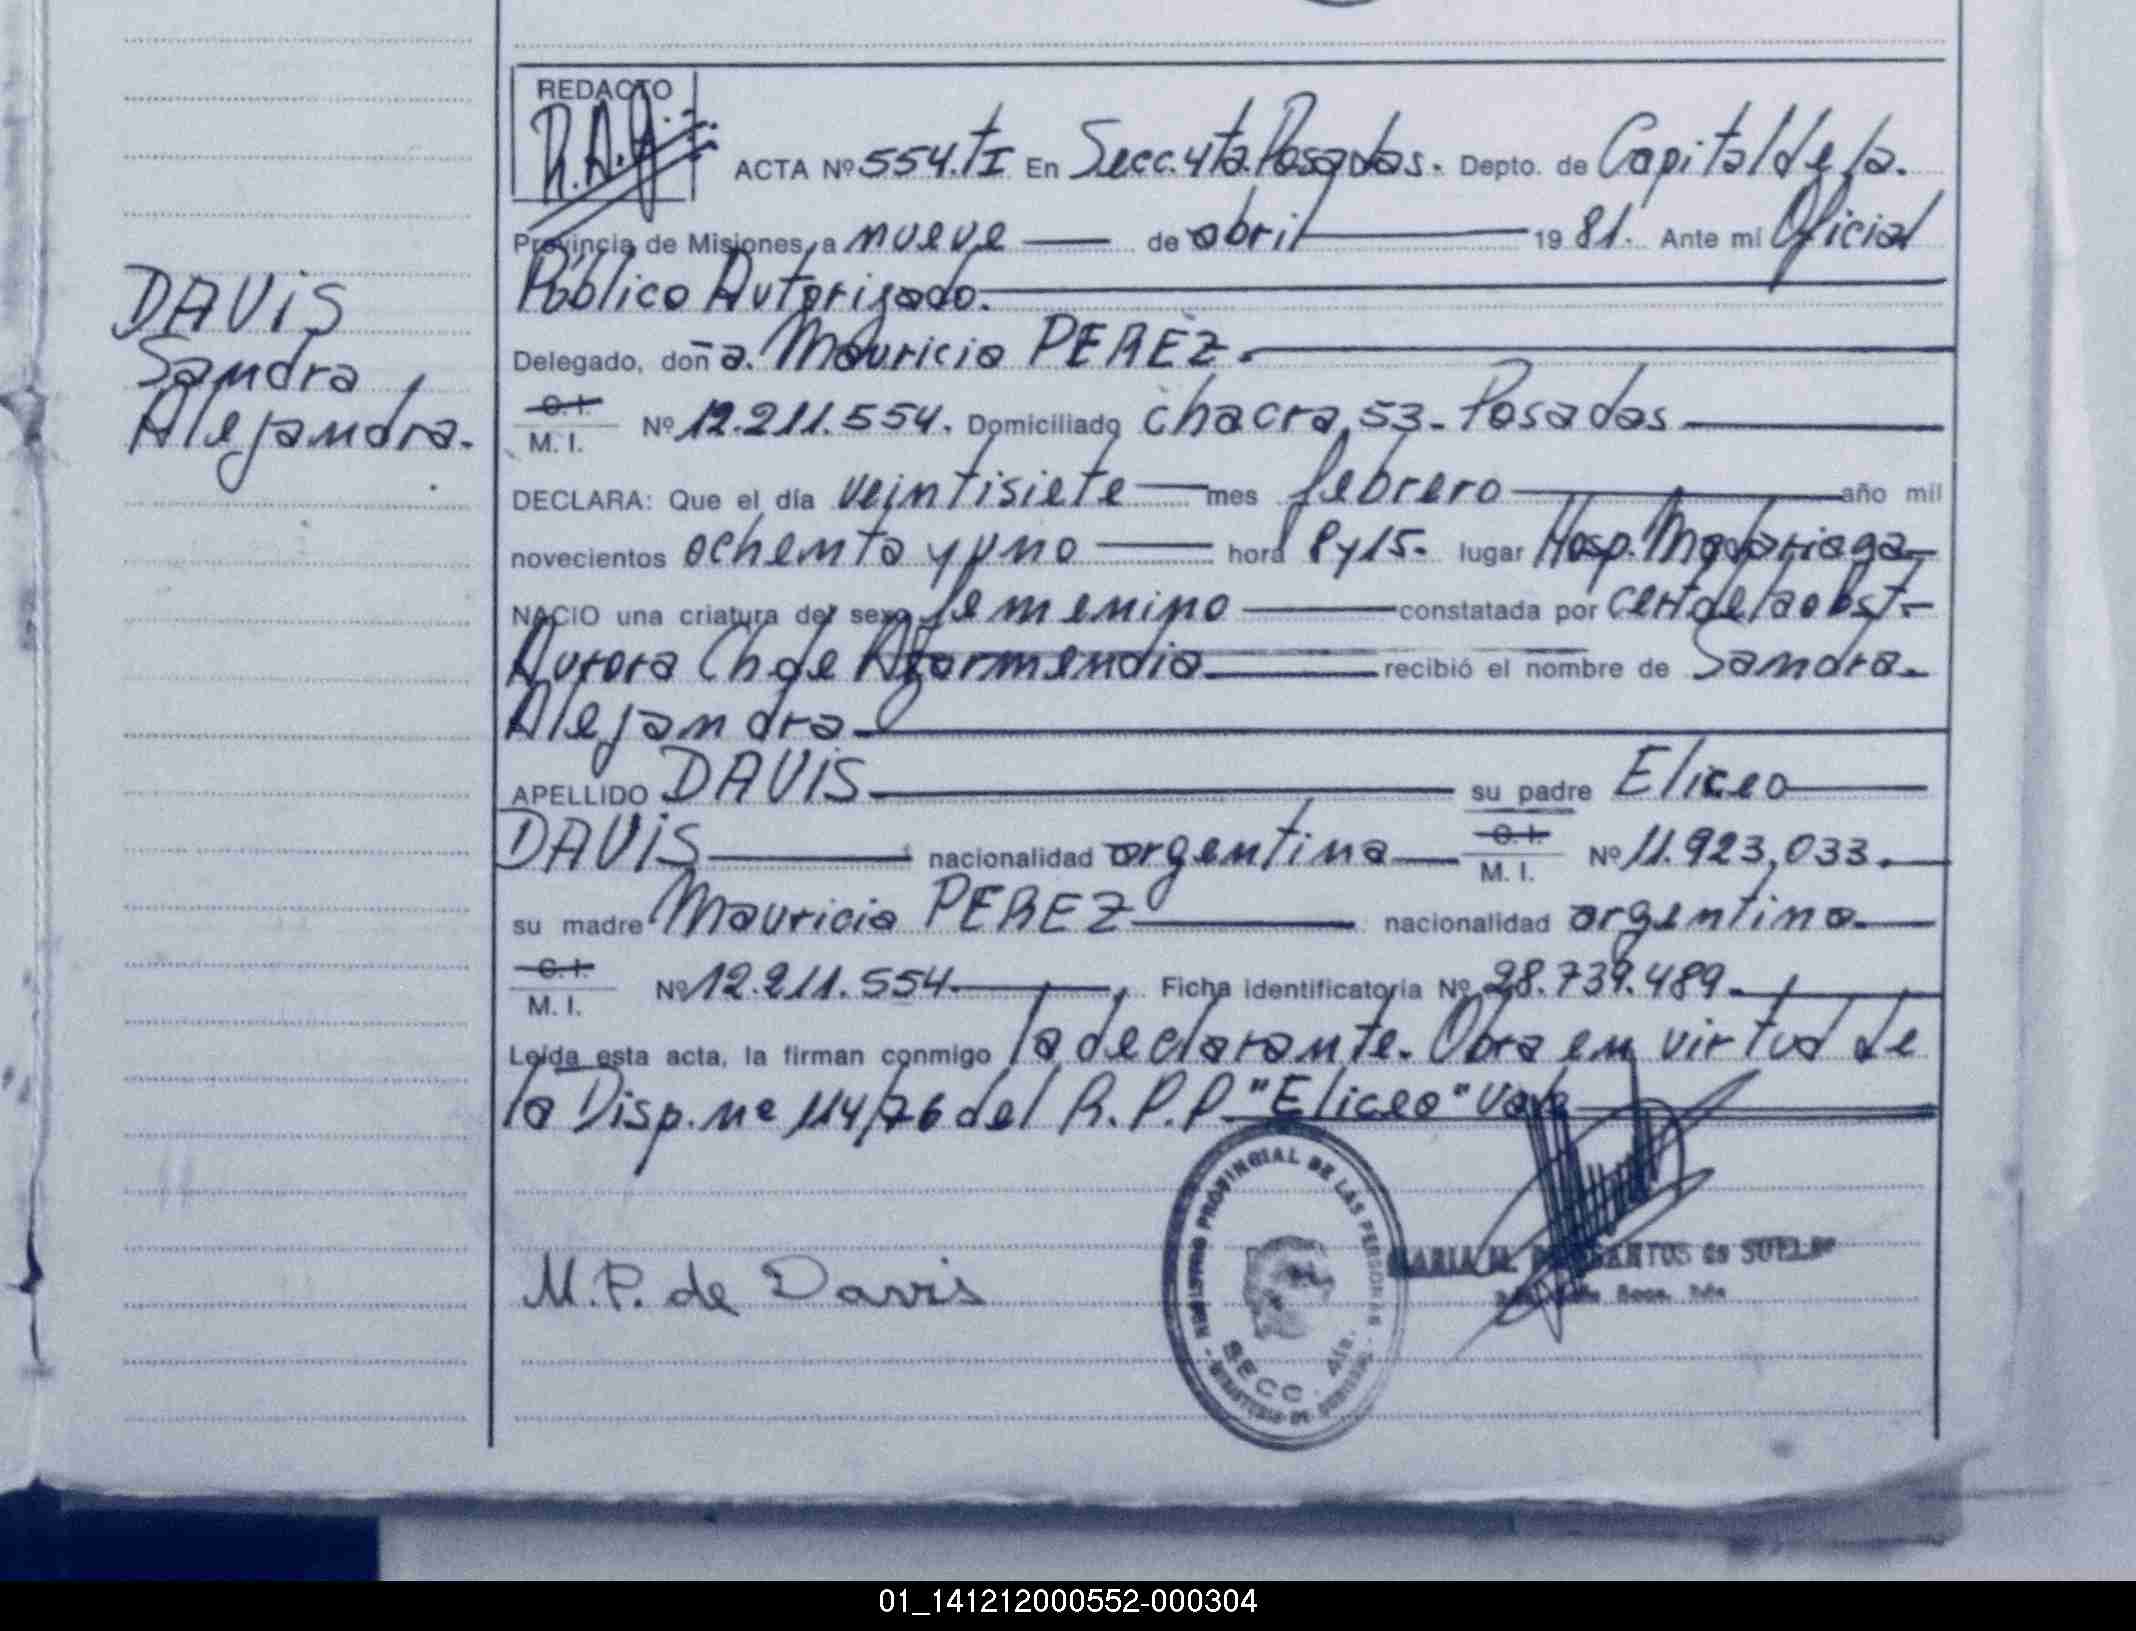 REDACTO
R.A.J.
ACTA Nº 554.TI En Secc. 4ta. Posadas. Depto. de Capital de la.
Provincia de Misiones, a nueve de abril 1981. Ante mí Oficial
Público Autorizado.
DAVIS
Sandra
Alejandra.
Delegado, doña. Mauricia PEREZ.
C. I.
M. I. Nº 12.211.554. Domiciliado chacra 53 - Posadas
DECLARA: Que el día veintisiete mes febrero año mil
novecientos ochenta y uno hora 8 y 15. lugar Hosp. Madariaga
NACIO una criatura del sexo femenino constatada por cert de la obst.
Aurora Ch de Agormendia recibió el nombre de Sandra
Alejandra
APELLIDO DAVIS su padre Eliceo
DAVIS nacionalidad argentina C. I. M. I. Nº 11.923,033.
su madre Mauricia PEREZ nacionalidad argentina
C. I.
M. I. Nº 12.211.554 Ficha identificatoria Nº 28.739.489
Leída esta acta, la firman conmigo la declarante. Obra en virtud de
la Disp. nº 114/76 del R.P.P. "Eliceo" Vale
REGISTRO PROVINCIAL DE LAS PERSONAS
SECC. 4ta.
MINISTERIO DE GOBIERNO
M.P. de Davis
MARIA M. SANTOS de
Secc. 4ta
01_141212000552-000304